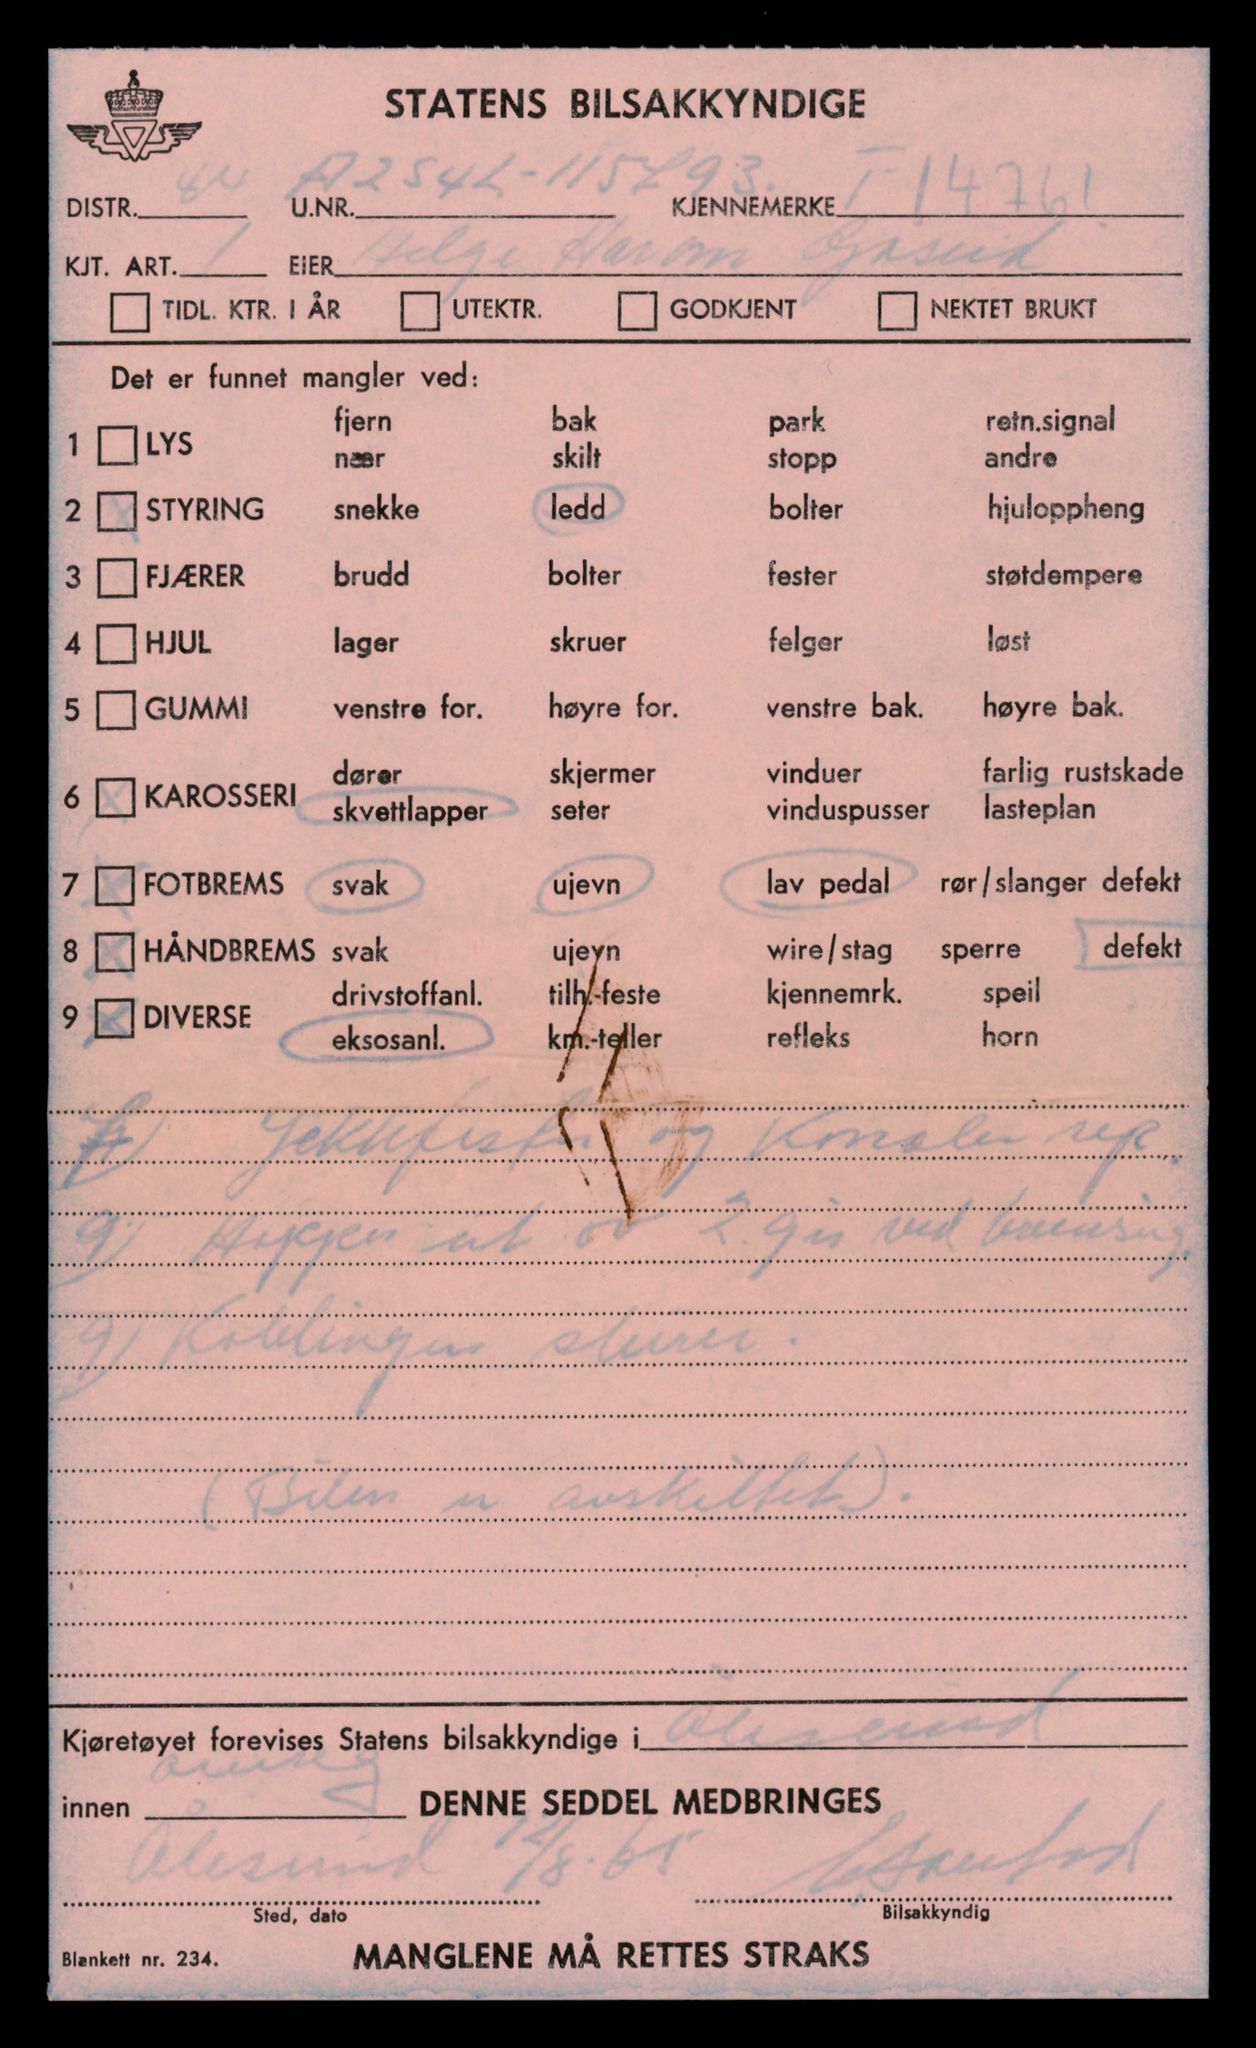 STATENS BILSAKKYNDIGE
DISTR. 44 U.NR. KJENNEMERKE T 14761
KJT. ART. 1 EIER Helge Harom Gjøsund
TIDL. KTR. I ÅR UTEKTR. GODKJENT NEKTET BRUKT
Det er funnet mangler ved:
1 LYS fjern bak park retn.signal
nær skilt stopp andre
2 STYRING snekke ledd bolter hjuloppheng
3 FJÆRER brudd bolter fester støtdempere
4 HJUL lager skruer felger løst
5 GUMMI venstre for. høyre for. venstre bak. høyre bak.
6 KAROSSERI dører skjermer vinduer farlig rustskade
skvettlapper seter vinduspusser lasteplan
7 FOTBREMS svak ujevn lav pedal rør/slanger defekt
8 HÅNDBREMS svak ujevn wire/stag sperre defekt
9 DIVERSE drivstoffanl. tilh.-feste kjennemrk. speil
eksosanl. km.-teller refleks horn
Jekkfester og Konsoler rep.
9) Hopper ut av 2. gir ved bremsing.
9) Koblingen slurer.
(Bilen er avskiltet).
Kjøretøyet forevises Statens bilsakkyndige i Ålesund
innen DENNE SEDDEL MEDBRINGES
Ålesund 12/8-65
Sted, dato Bilsakkyndig
Blankett nr. 234. MANGLENE MÅ RETTES STRAKS